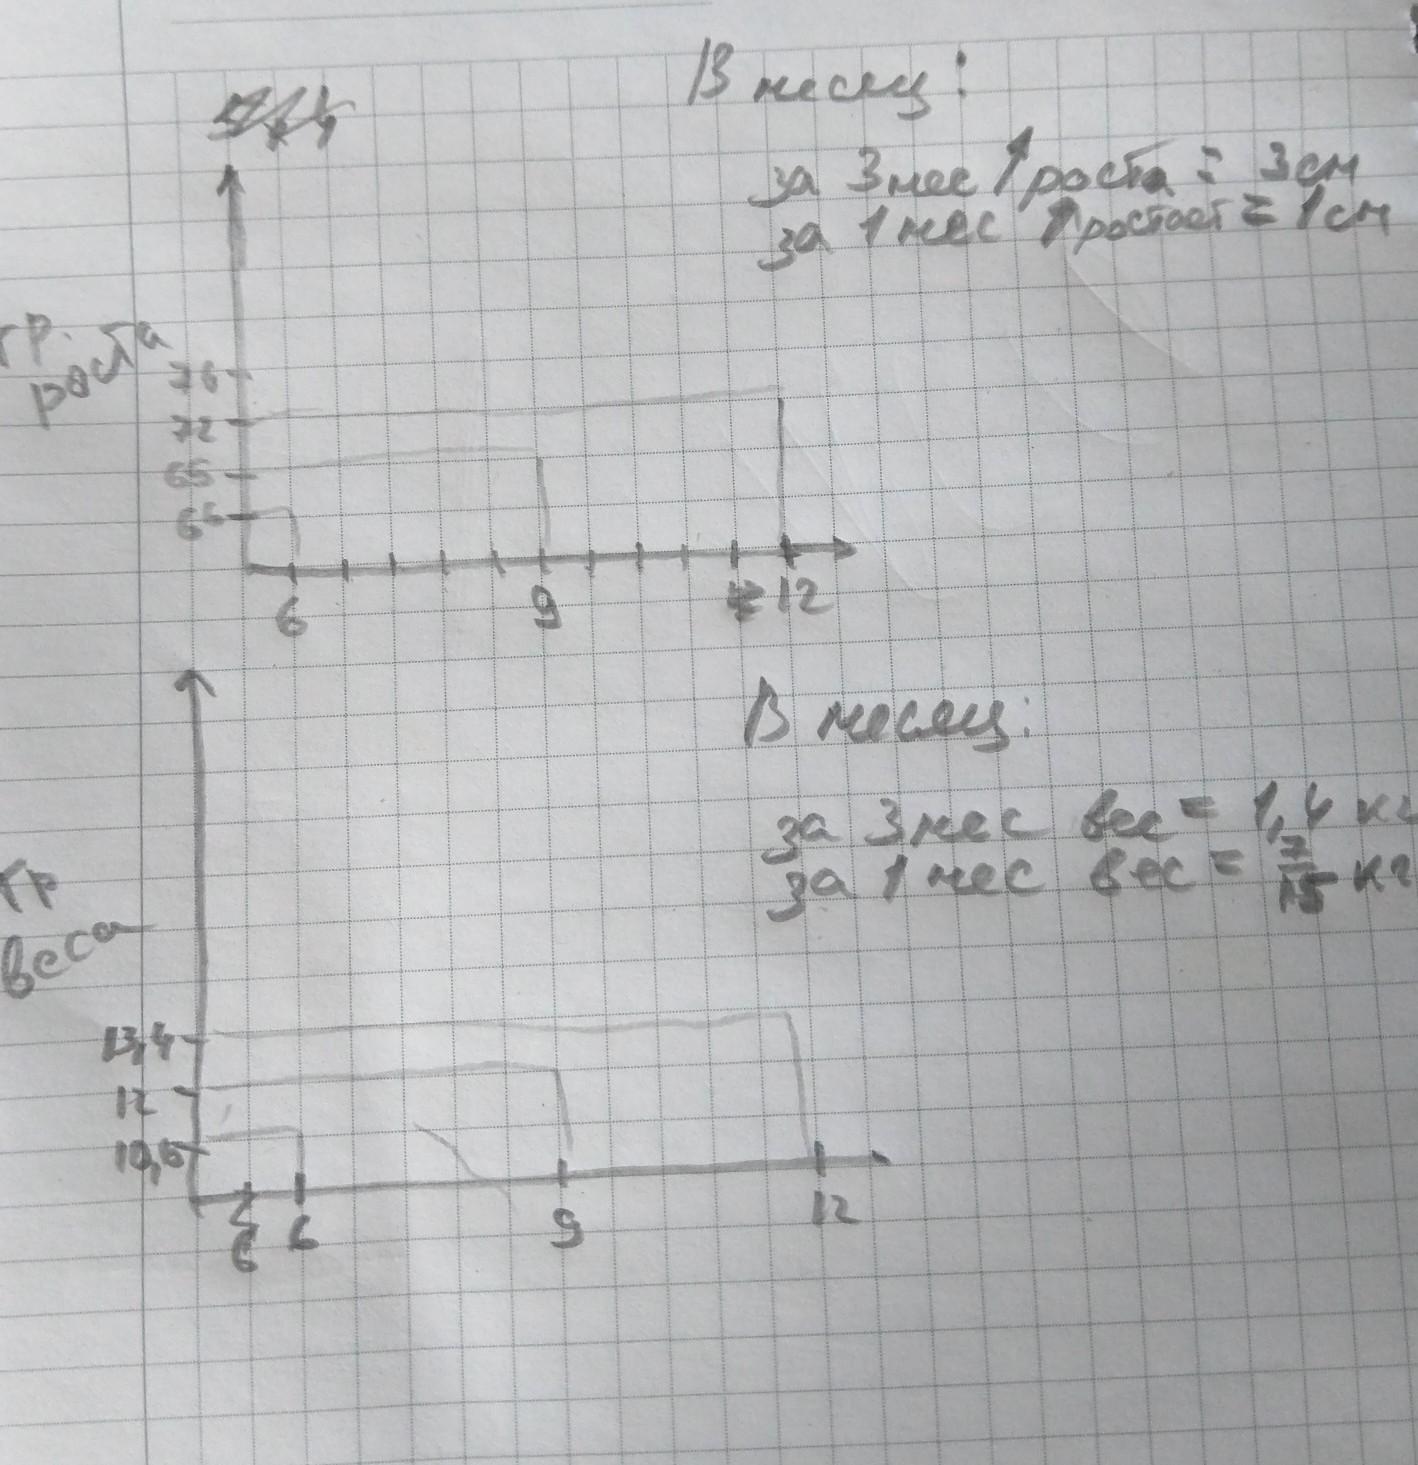 В месяц:
за 3 мес ↑ роста = 3 см
за 1 мес ↑ ростает = 1 см
гр.
роста
76
72
65
66
6 9 12
В месяц:
за 3 мес вес = 1,4 кг
за 1 мес вес = 7/15 кг
гр
веса
13,4
12
10,6
6 6 9 12